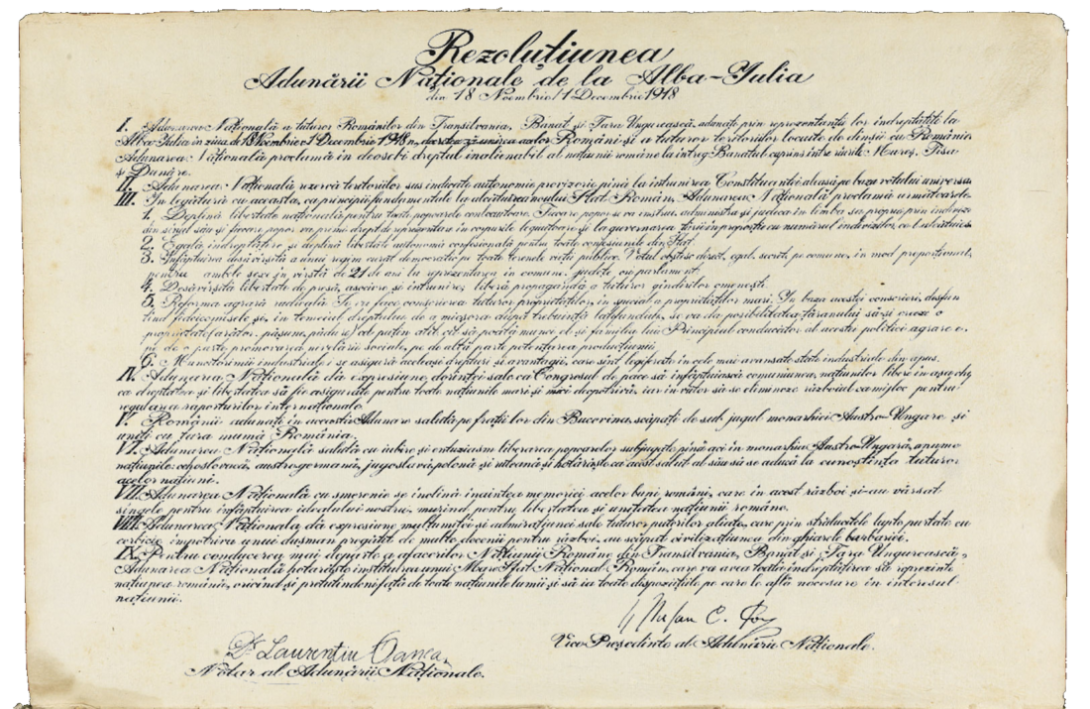 Rezoluțiunea
Adunării Naționale de la Alba-Iulia
din 18 Noembrie/1 Decembrie 1918
I. Adunarea Națională a tuturor Românilor din Transilvania, Banat și Țara Ungurească, adunați prin reprezentanții lor îndreptățiți la
Alba-Iulia în ziua de 18 Noembrie/1 Decembrie 1918, Români și a tuturor teritoriilor locuite de dînșii cu România.
Adunarea Națională proclamă în deosebi dreptul inalienabil al națiunii române la întreg Banatul cuprins între rîurile Mureș, Tisa
și Dunăre.
II. Adunarea Națională rezervă teritoriilor sus indicate autonomie provizorie pînă la întrunirea Constituantei aleasă pe baza votului universal
III. În legătură cu aceasta, ca principii fundamentale la alcătuirea noului Stat Român, Adunarea Națională proclamă următoarele:
1. Deplină libertate națională pentru toate popoarele conlocuitoare. Fiecare popor se va instrui, administra și judeca în limba sa proprie prin indivizi
din sînul său și fiecare popor va primi drept de reprezentare în corpurile legiuitoare și la guvernarea țării în proporție cu numărul indivizilor ce-l alcătuiesc.
2. Egală îndreptățire și deplină libertate autonomă confesională pentru toate confesiunile din Stat.
3. Înfăptuirea desăvîrșită a unui regim curat democratic pe toate terenele vieții publice. Votul obștesc, direct, egal, secret, pe comune, în mod proporțional,
pentru ambele sexe în vîrstă de 21 de ani la reprezentarea în comune, județe ori parlament.
4. Desăvîrșită libertate de presă, asociere și întrunire, liberă propagandă a tuturor gîndirilor omenești.
5. Reforma agrară radicală. Se va face conscrierea tuturor proprietăților, în special a proprietăților mari. În baza acestei conscrieri, desfiin
țînd fideicomisele și, în temeiul dreptului de a micșora după trebuință latifundiile, se va da posibilitatea țăranului să-și creeze o
proprietate (arător, pășune, pădure) cel puțin atît cît să poată munci el și familia lui. Principiul conducător al acestei politici agrare e,
pe de o parte promovarea nivelării sociale, pe de altă parte potențarea producțiunii.
6. Muncitorimii industriale i se asigură aceleași drepturi și avantagii, care sînt legiferate în cele mai avansate state industriale din apus.
IV. Adunarea Națională dă expresiune dorinței sale ca Congresul de pace să înfăptuiască comuniunea națiunilor libere în așa chip
ca dreptatea și libertatea să fie asigurate pentru toate națiunile mari și mici deopotrivă, iar în viitor să se elimineze războiul ca mijloc pentru
regularea raporturilor internaționale.
V. Românii adunați în această Adunare salută pe frații lor din Bucovina, scăpați de sub jugul monarhiei Austro-Ungare și
uniți cu țara mumă România.
VI. Adunarea Națională salută cu iubire și entusiasm liberarea popoarelor subjugate pînă aci în monarhia Austro-Ungară, anume
națiunile: cehoslovacă, austrogermană, jugoslavă, polonă și ruteană și hotărăște ca acest salut al său să se aducă la cunoștința tuturor
acelor națiuni.
VII. Adunarea Națională cu smerenie se închină înaintea memoriei acelor bravi români, care în acest război și-au vărsat
sîngele pentru înfăptuirea idealului nostru, murind pentru libertatea și unitatea națiunii române.
VIII. Adunarea Națională dă expresiune mulțumitei și admirațiunei sale tuturor puterilor aliate, care prin strălucitele lupte purtate cu
cerbicie împotriva unui dușman pregătit de multe decenii pentru război, au scăpat civilizațiunea din ghiarele barbariei.
IX. Pentru conducerea mai departe a afacerilor Națiunii Române din Transilvania, Banat și Țara Ungurească,
Adunarea Națională hotărăște instituirea unui Mare Sfat Național Român, care va avea toată îndreptățirea să reprezinte
națiunea română, oricînd și pretutindeni față de toate națiunile lumii și să ia toate dispozițiile pe care le află necesare în interesul
națiunii.
Dr. Laurențiu Oanea,
Notar al Adunării Naționale.
Vice Președinte al Adunării Naționale.